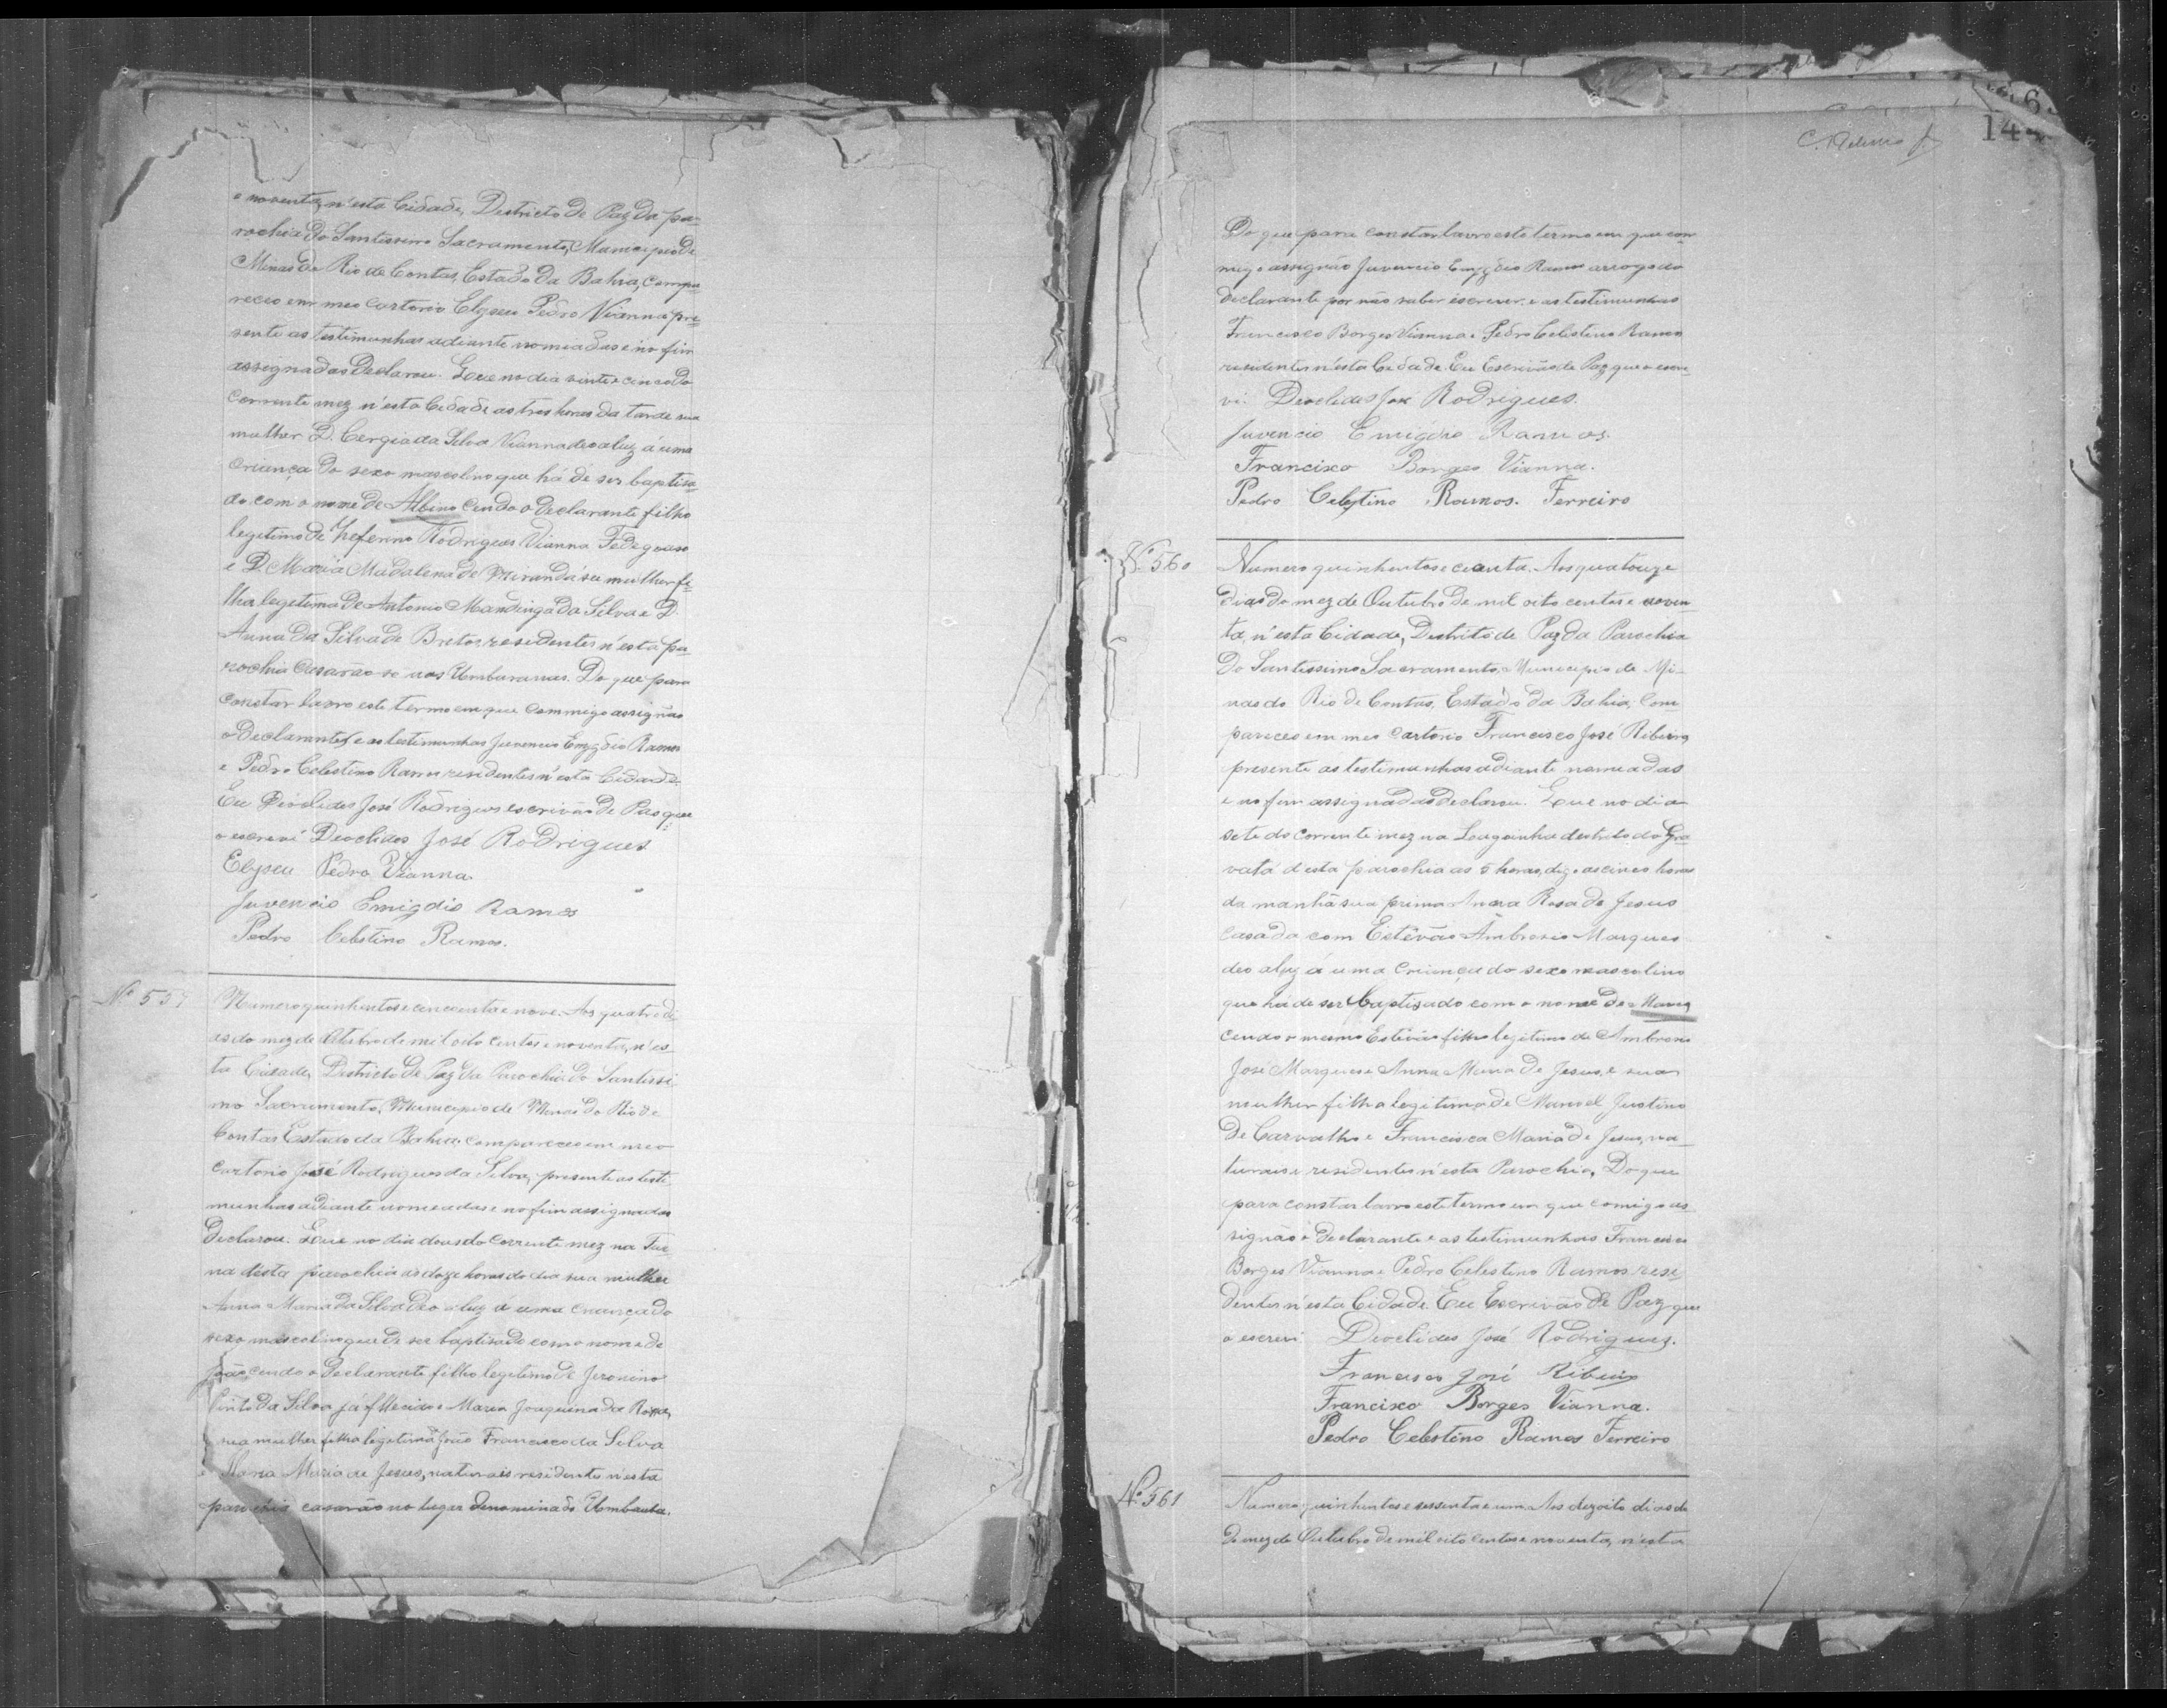 e noventa, n'esta Cidade, Destricto de Paz da pa-
rochia do Santissimo Sacramento, Municipio de
Minas do Rio de Contas, Estado da Bahia, compa-
receo em meo Cartorio Elyseu Pedro Vianna pre-
sente as testimunhas adiante nomeadas e no fim
assignadas Declarou. Que no dia vinte e cinco do
Corrente mez n'esta Cidade as tres horas da tarde sua
mulher D. Cergia da Silva Vianna deo a luz á uma
Criança do sexo mascolino que há de ser baptisa-
do com o nome de Albino Cendo o declarante filho
legitimo de Zeferino Rodrigues Vianna
e D. Maria Madalena de Miranda sua mulher fi-
lha legetima de Antonio Mandinga da Silva e D.
Anna da Silva de Britos residentes n'esta pa-
rochia Casarão-se nas Umburanas. Do que para
constar lavro este termo em que commigo assignão
o Declarante e as testimunhas Juvencio Emygdio Ramos
e Pedro Celestino Ramos residentes n'esta Cidade.
Eu Deoclides José Rodrigues escrivão de Pas que
o escrevi Deoclides José Rodrigues
Elyseu Pedro Vianna
Juvencio Emigdio Ramos
Pedro Celestino Ramos.
Nº 559
Numero quinhentos e cincoenta e nove. Aos quatro di-
as do mez de Outubro de mil oito centos e noventa, n'es-
ta Cidade, Destricto de Paz da Parochia do Santissi-
mo Sacramento, Municipio de Minas do Rio de
Contas Estado da Bahia, compareceo em meo
Cartorio José Rodrigues da Silva, presente as teste
munhas adiante nomeadas e no fim assignadas
Declarou. Que no dia dous do Corrente mez na
na desta parochia as doze horas do dia sua mulher
Anna Maria da Silva deo a luz á uma criança do
sexo mascolino que de ser baptisado com o nome de
João cendo o Declarante filho legetimo de Jeronimo
Pinto da Silva já fallecido e Maria Joaquina da Roxa,
sua mulher filha legitima João Francisco da Silva
e Maria Maria de Jesus, naturais residente n'esta
parochia casarão no lugar denominado
C. Adelino
14
Do que para constar lavro este termo em que com
migo assignão Juvencio Emygdio Ramos arrogo do
declarante por não saber escrever. e as testimunhas
Francisco Borges Vianna e Pedro Celestino Ramos
residentes n'esta Cidade. Eu Escrivão de Paz que o escre-
vi Deoclides José Rodrigues.
Juvencio Emigdio Ramos.
Francisco Borges Vianna.
Pedro Celestino Ramos. Ferreiro
Nº 560
Numero quinhentos e cecenta. Aos quatouze
dias do mez de Outubro de mil oito centos e noven-
ta, n'esta Cidade, Destrito de Paz da Parochia
do Santissimo Sacramento, Municipio de Mi-
nas do Rio de Contas, Estado da Bahia, Com
pareceo em meo Cartorio Francisco José Ribeiro,
presente as testimunhas adiante nomeadas
e no fim assignadas declarou. Que no dia
sete do corrente mez na Lagoinha destrito do Gra-
vatá d'esta parochia as 5 horas, digo as cinco horas
da manhã sua prima Anna Rosa de Jesus
Casada com Estevão Ambrosio Marques
deo a luz á uma Criança do sexo mascolino
que há de ser baptisado com o nome de
cendo o mesmo Estevão filho legitimo de Ambrosio
José Marques e Anna Maria de Jesus, e sua
mulher filha legitima de Manoel Justino
de Carvalho e Francisca Maria de Jesus, na-
turaes e residentes n'esta Parochia, Do que
para constar lavro este termo em que comigo as-
signão o declarante e as testimunhas Francisco
Borges Vianna e Pedro Celestino Ramos resi-
dentes n'esta Cidade. Eu Escrivão de Paz que
o escrevi Deoclides José Rodrigues.
Francisco José Ribeiro
Francisco Borges Vianna.
Pedro Celestino Ramos Ferreiro
Nº 561
Numero quinhentos e sessenta e um. Aos dezoito dias do
do mez de Outubro de mil oito centos e noventa, n'esta